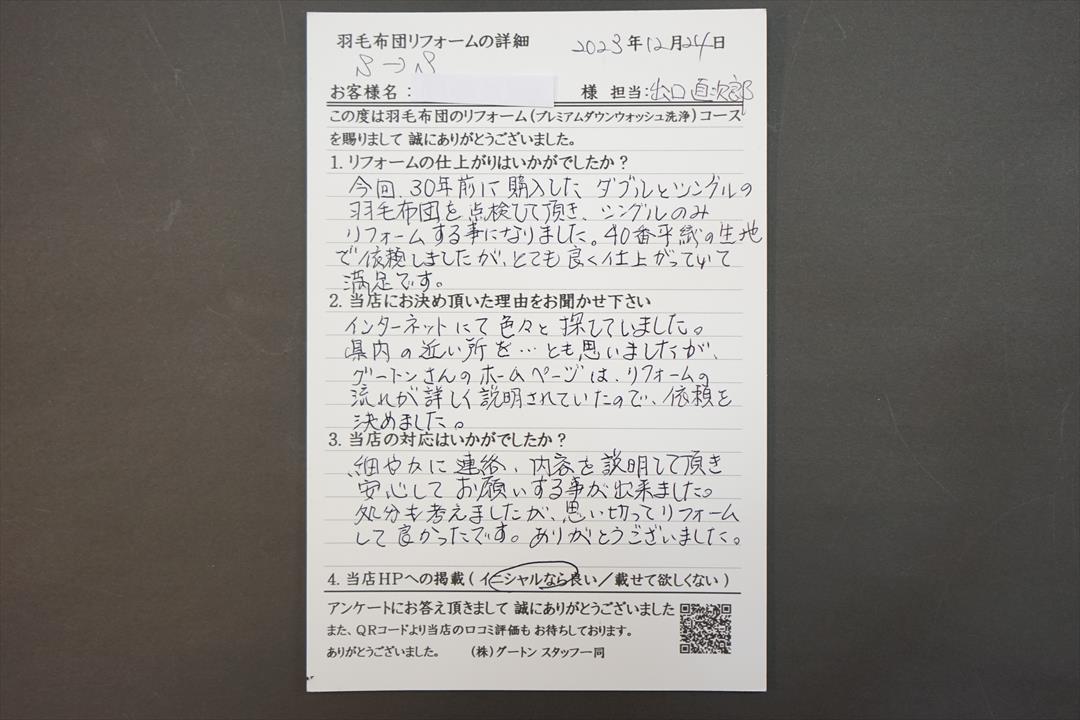 羽毛布団リフォームの詳細 2023年12月24日
S→S
お客様名： 様 担当：出口直次郎
この度は羽毛布団のリフォーム(プレミアムダウンウォッシュ洗浄)コース
を賜りまして 誠にありがとうございました。
1. リフォームの仕上がりはいかがでしたか？
今回、30年前に購入したダブルとシングルの
羽毛布団を点検して頂き、シングルのみ
リフォームする事になりました。40番平織の生地
で依頼しましたが、とても良く仕上がっていて
満足です。
2. 当店にお決め頂いた理由をお聞かせ下さい
インターネットにて色々と探していました。
県内の近い所を…とも思いましたが、
グートンさんのホームページは、リフォームの
流れが詳しく説明されていたので、依頼を
決めました。
3. 当店の対応はいかがでしたか？
細やかに連絡、内容を説明して頂き
安心してお願いする事が出来ました。
処分も考えましたが、思い切ってリフォーム
して良かったです。ありがとうございました。
4. 当店HPへの掲載(イニシャルなら良い／載せて欲しくない)
アンケートにお答え頂きまして 誠にありがとうございました
また、QRコードより当店の口コミ評価も お待ちしております。
ありがとうございました。 (株)グートン スタッフ一同